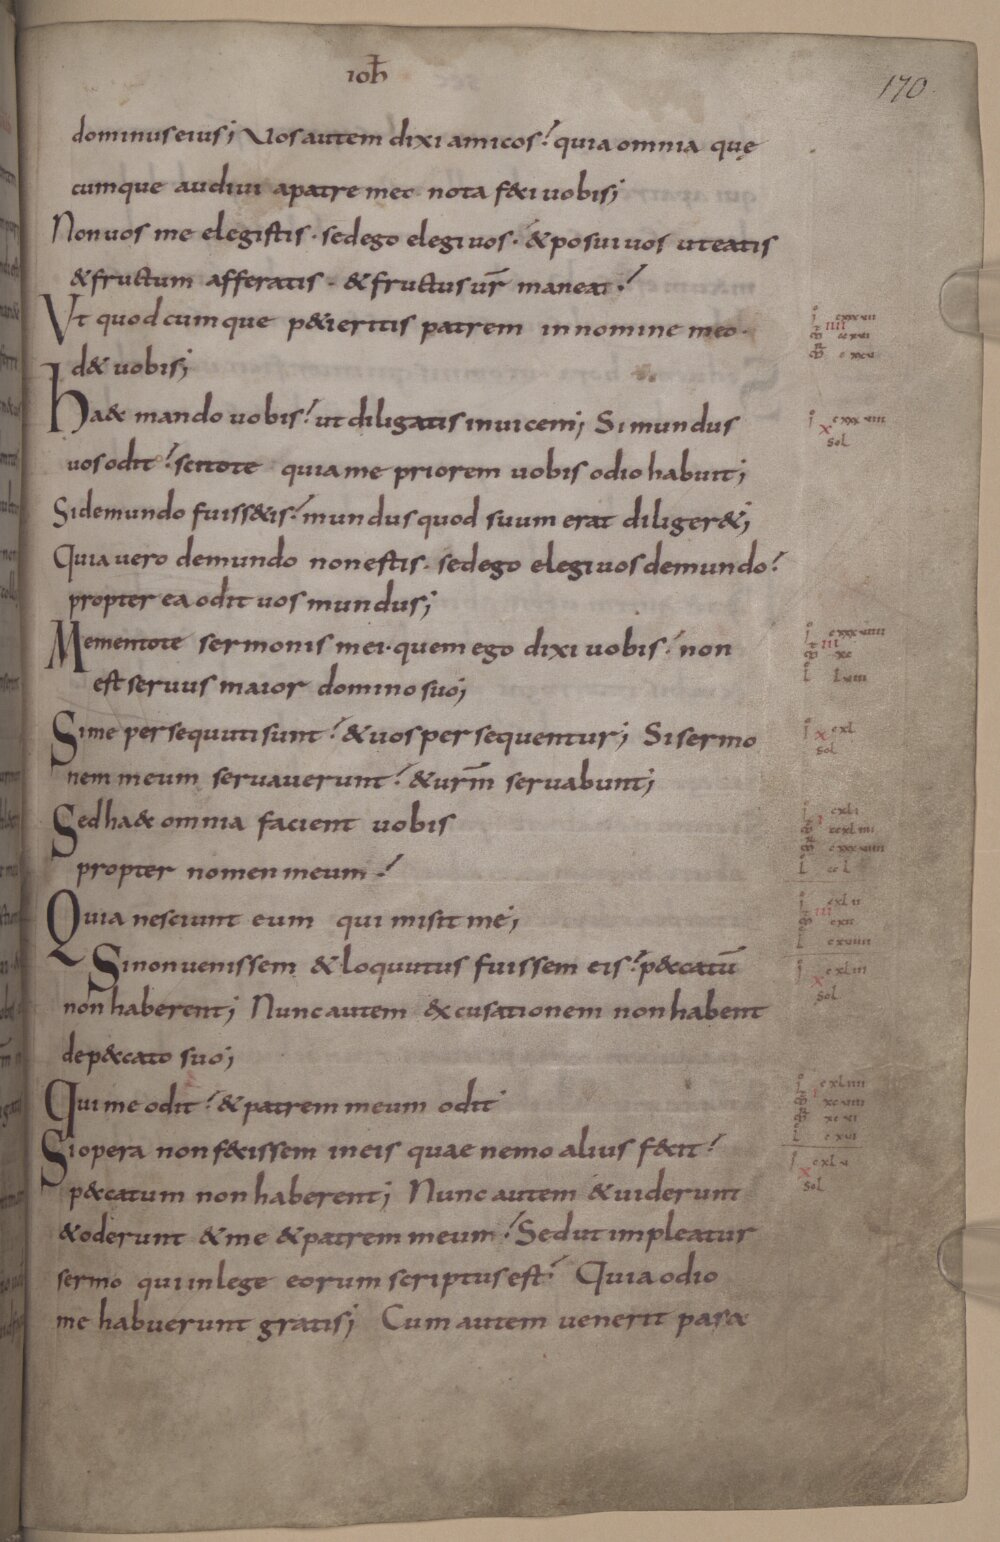 ioħ
170
dominus eius; Vos autem dixi amicos? quia omnia quę
cumque audivi apatre meo nota f&i uobis;
Non uos me elegistis · sed ego elegi uos · & posui uos ut eatis
& fructum afferatis · & fructus ur̄ maneat ·?
Vt quodcumque p&ieritis patrem in nomine meo ·
d& uobis;
ha& mando uobis? ut diligatis inuicem; Si mundus
uos odit? scitote quia me priorem uobis odio habuit;
Si demundo fuiss&is? mundus quod suum erat diliger&;
Quia vero demundo non estis · sed ego elegi uos demundo?
propter ea odit uos mundus;
Mementote sermonis mei · quem ego dixi uobis? non
est servus maior domino suo;
Si me persequuti sunt? & uos persequentur; Si sermo
nem meum servaverunt? & urm̄ servabunt;
Sed ha& omnia facient vobis
propter nomen meum ·?
Quia nesciunt eum qui misit me;
Si non uenissem & loquutus fuissem eis? p&catū
non haberent; Nunc autem &cusationem non habent
de p&cato suo;
Qui me odit? & patrem meum odit
Si opera non f&issem in eis quae nemo alius f&it?
p&catum non haberent; Nunc autem & uiderunt
& oderunt & me & patrem meum? Sed ut impleatur
sermo qui in lege eorum scriptus est? Quia odio
me habuerunt gratis; Cum autem uenerit para